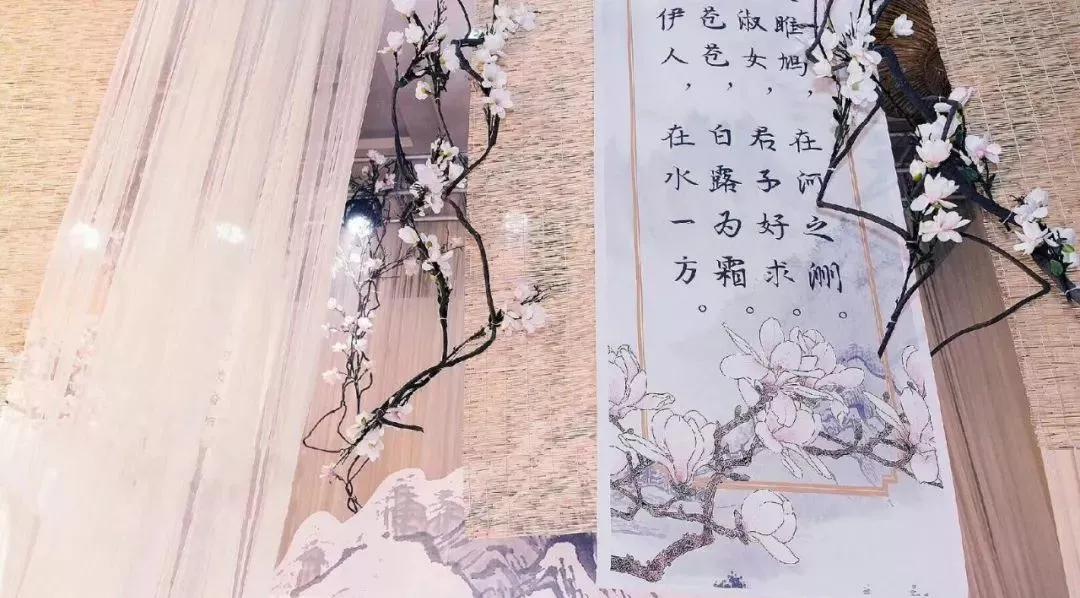 雎鸠，在河之洲。
淑女，君子好求。
苍苍，白露为霜。
伊人，在水一方。